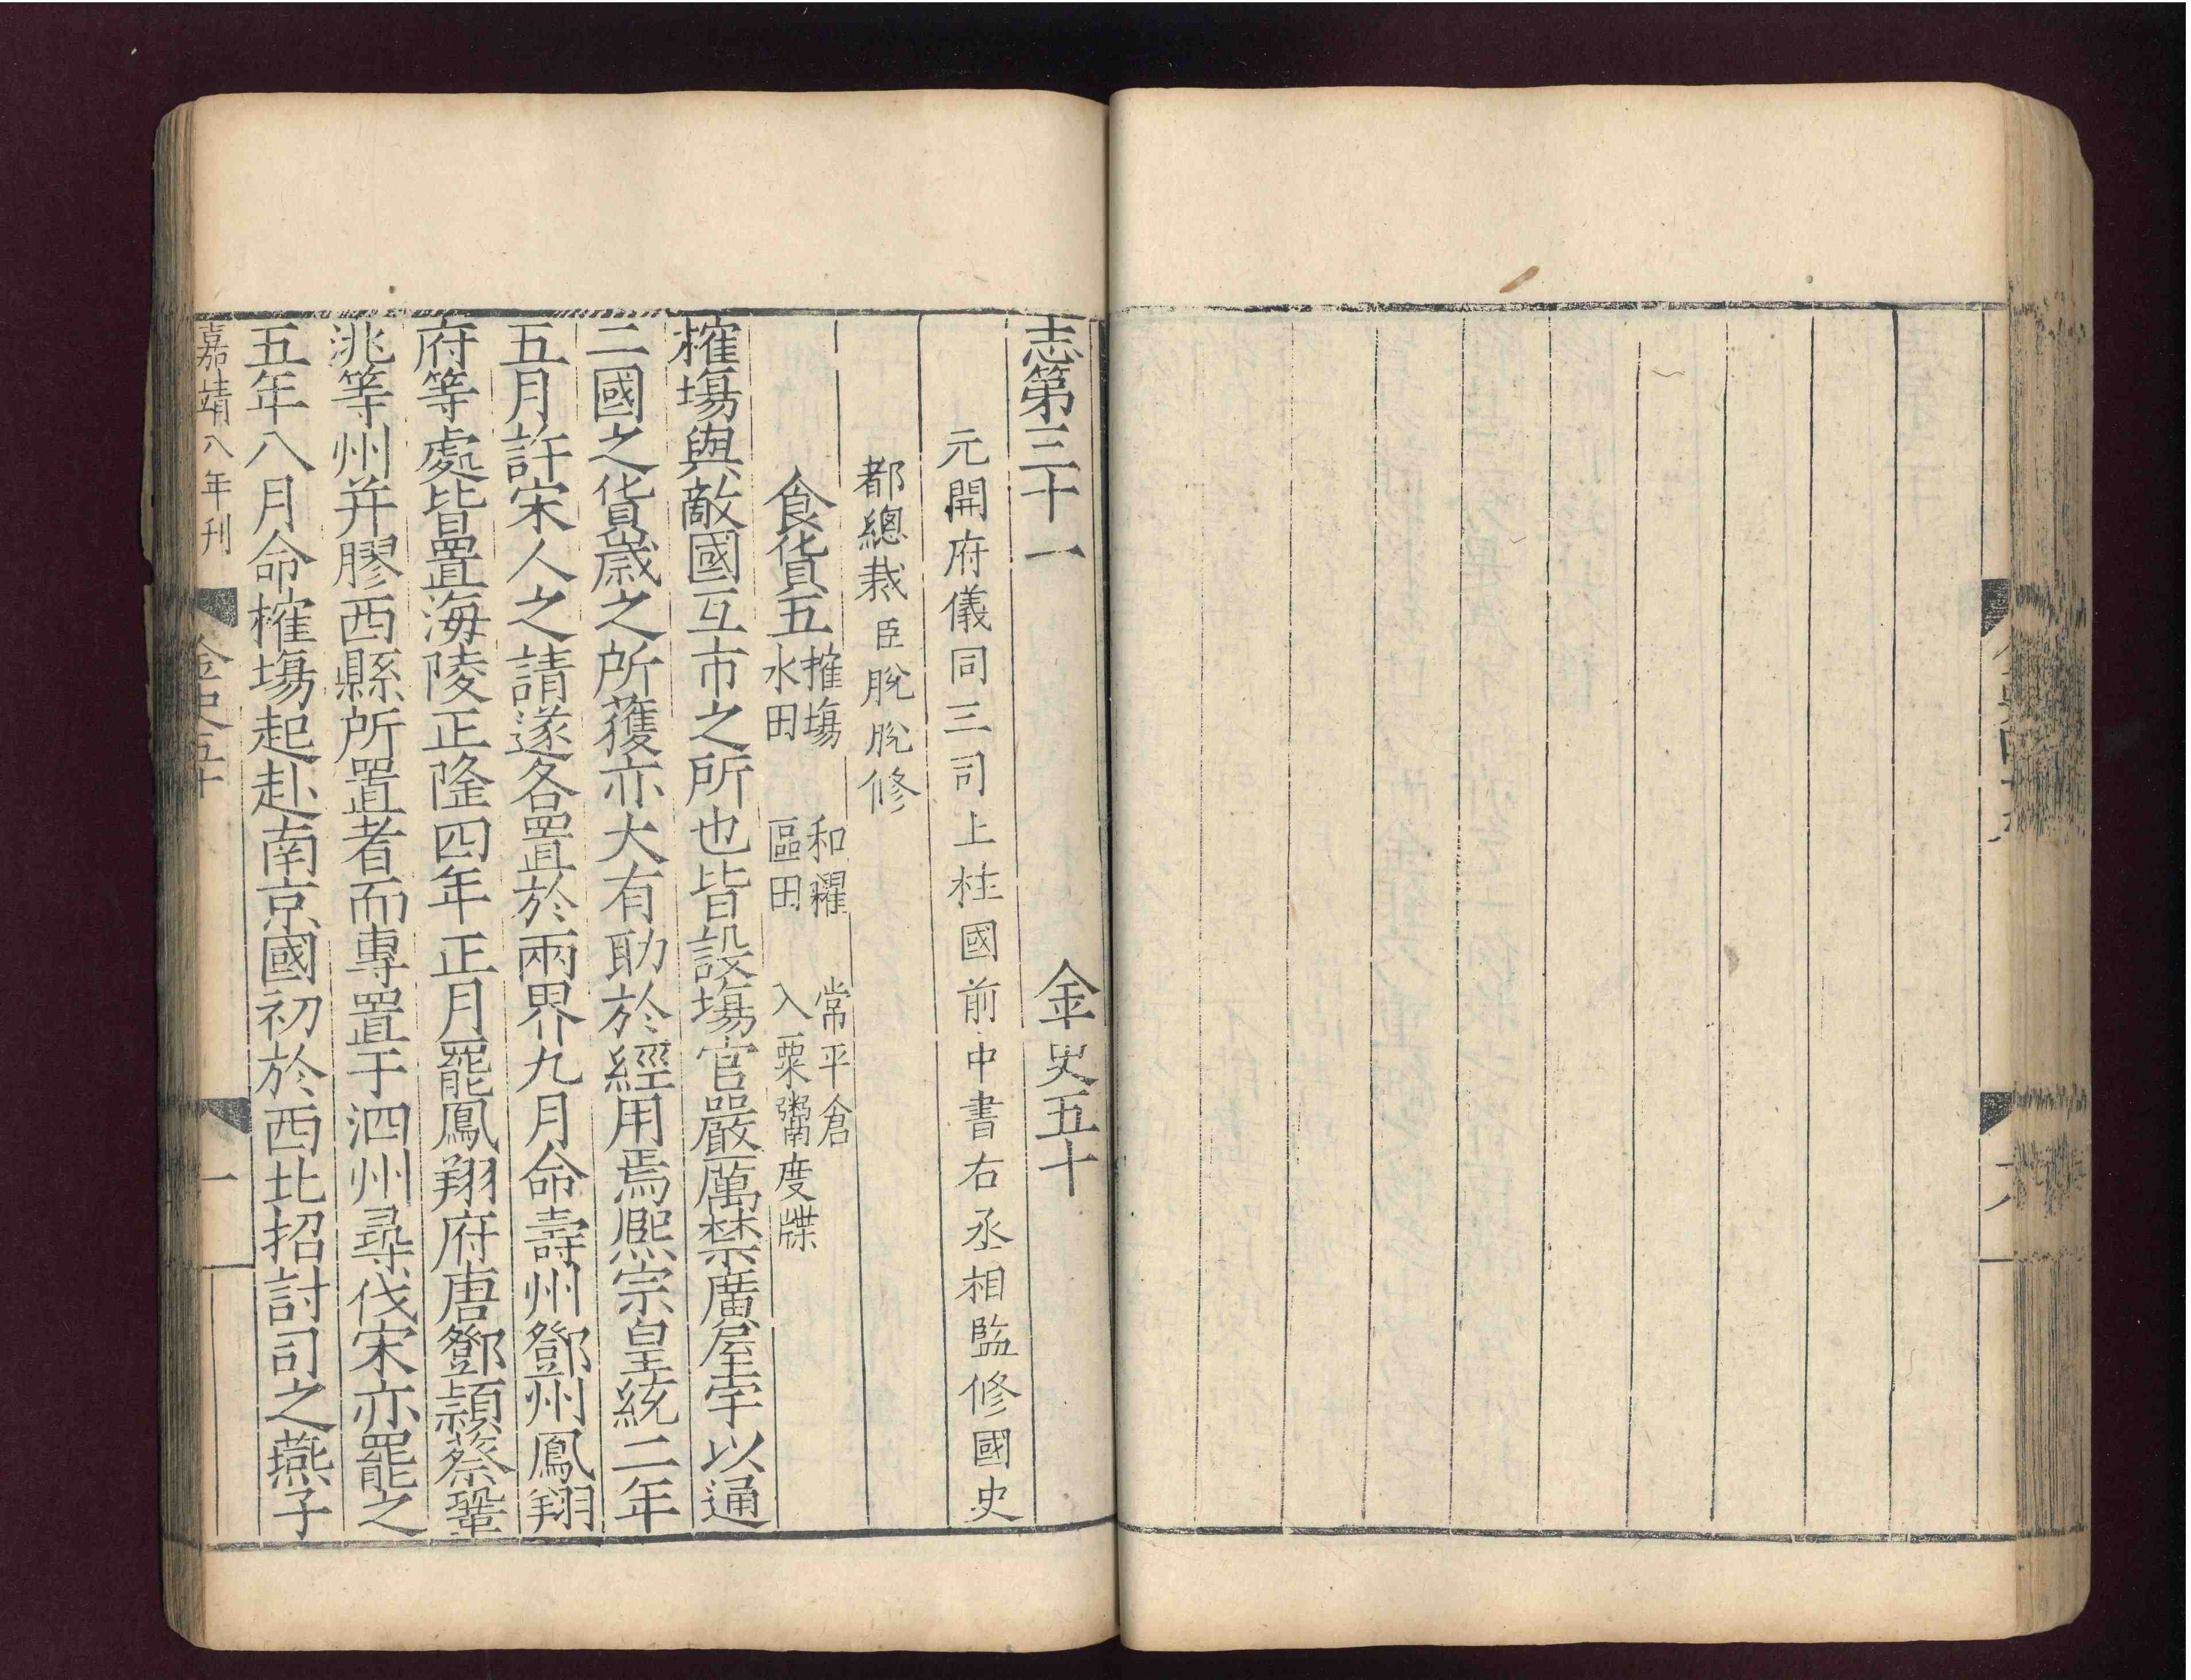 志第三十一 金史五十
元開府儀同三司上柱國前中書右丞相監修國史
都總裁臣脫脫修
食貨五 搉場 和糴 常平倉
水田 區田 入粟鬻度牒
榷場與敵國互市之所也皆設場官嚴厲禁廣屋宇以通
二國之貨歲之所獲亦大有助於經用焉熈宗皇統二年
五月許宋人之請遂各置於兩界九月命壽州鄧州鳳翔
府等處皆置海陵正隆四年正月罷鳳翔府唐鄧潁蔡鞏
洮等州并膠西縣所置者而專置于泗州尋伐宋亦罷之
五年八月命榷場起赴南京國初於西北招討司之燕子
嘉靖八年刊 金史五十 一